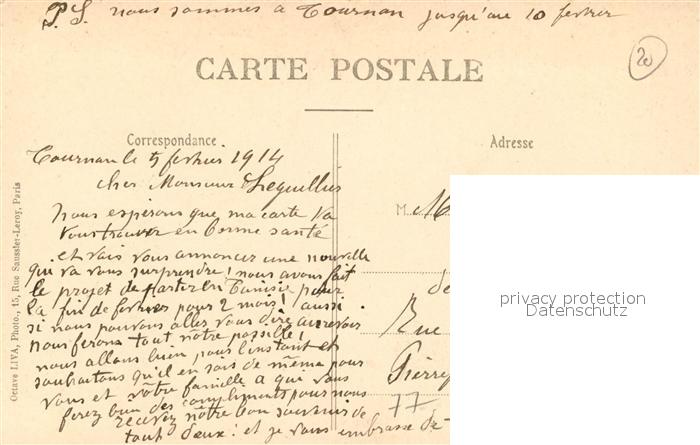 P.S. nous sommes a Tournan jusqu'au 10 fevrier
20
CARTE POSTALE
Correspondance
Adresse
Tournan le 5 fevrier 1914
cher Monsieur
Nous espérons que ma carte va
vous trouver en bonne santé
et vais vous annoncer une nouvelle
qui va vous surprendre! nous avons fait
le projet de partir en Tunisie pour
la fin de fevrier pour 2 mois! aussi
si nous pouvons aller vous dire au revoir
nous ferons tout notre possible!
nous allons bien pour l'instant et
souhaitons qu'il en soit de même pour
vous et vôtre famille a qui vous
ferez bien des compliments pour nous
recevez nôtre bon souvenir de
tout deux! et je vous embrasse de
M
de
Rue
Pierre
77
Octave LIVA, Photo., 15, Rue Saussier-Leroy, Paris
privacy protection
Datenschutz